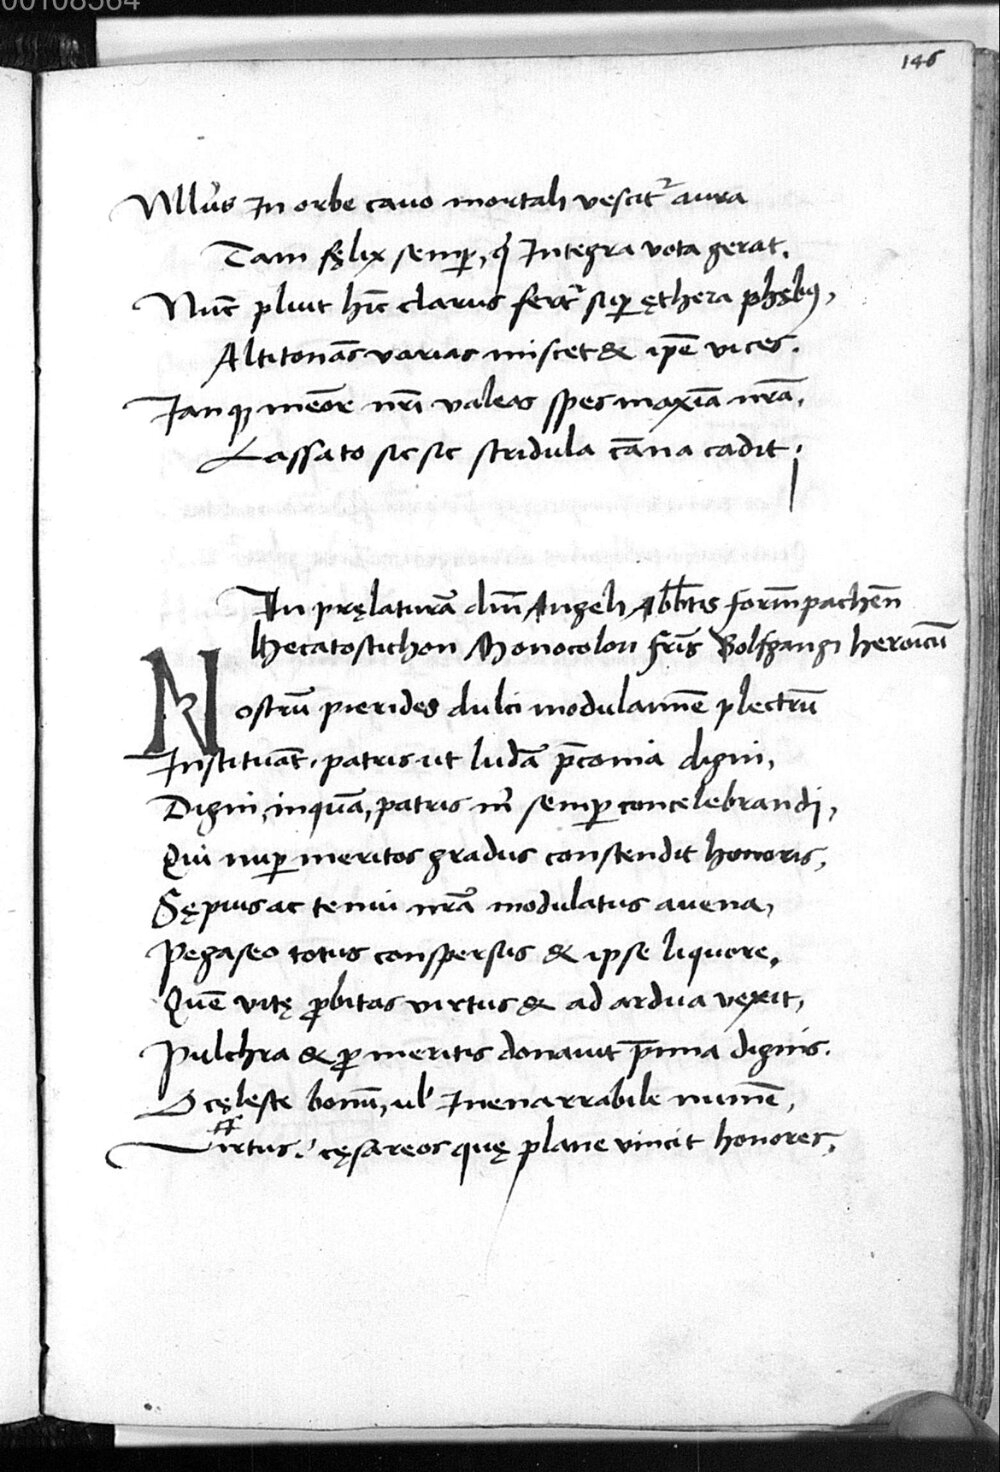 00108564
146
Vllus In orbe cauo mortali vescitʳ aura
Tam fęlix semp, q̄ Integra vota gerat.
Nūc pluit hīc clarus fertʳ sup ęthera phębꝰ,
Altitonās varias miscet & ip̄e vices.
Iamqꝫ memōr nr̄i valeas spes maxīa nr̄a,
Lassato sic sic stridula cāna cadit.
In pręlaturā dn̄i Angeli Abb̄tis form̄pachen̄
Hecatostichon Monocolon fr̄is Bolfgangi heroicū
Nostrū pierides dulci modulamīe plectrū
Instituāt, patris ut ludā p̄conia digni,
Digni, inquā, patris m̄ semꝑ concelebrandi,
Qui nuꝑ meritos gradus constendit honoris,
Sępius ac tenui nr̄a modulatus auena,
Pegaseo totus conspersus & ipse liquore,
Quē vitę ꝓbitas virtus & ad ardua vęxit,
Pulchra & ꝓ meritis donauit p̄mia dignis.
O cęleste bonū, ul' Inenarrabile numē,
Virtus, cęsareos quę plane vincit honores,